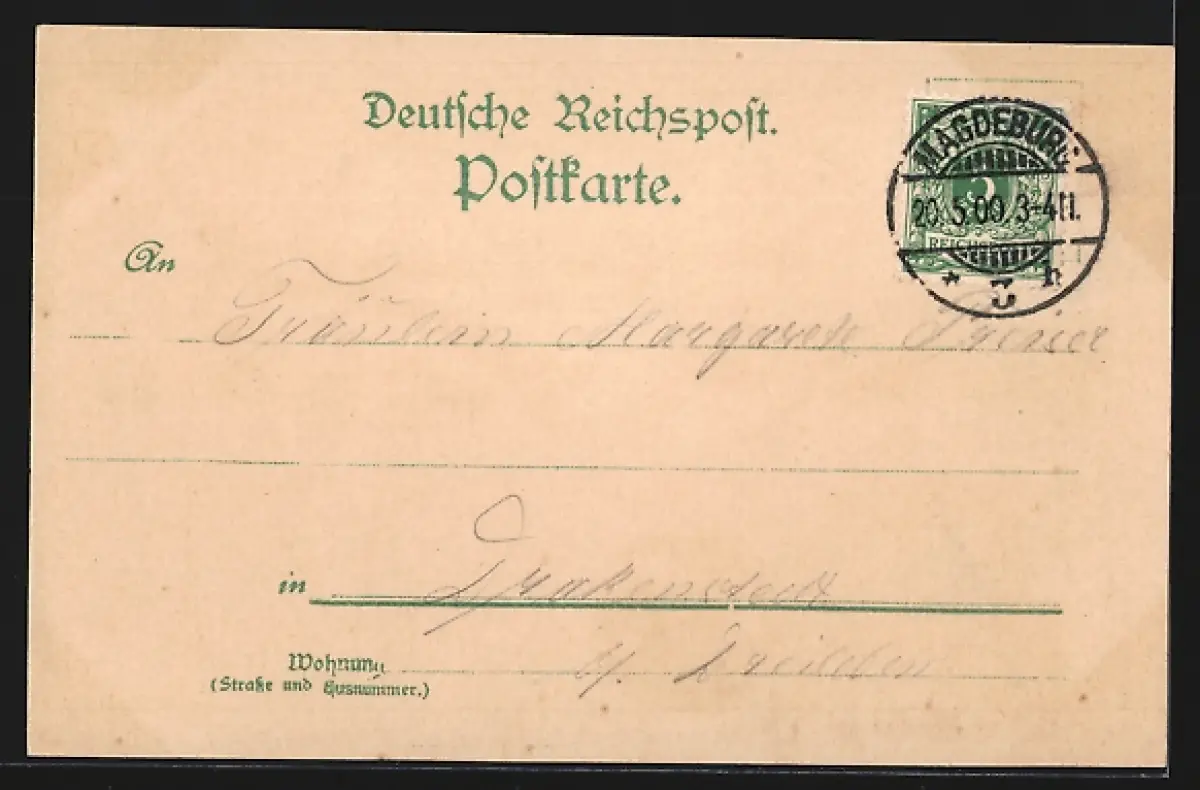 Deutsche Reichspost.
Postkarte.
MAGDEBURG
20.5.00. 3-4N.
5
REICHSPOST
* 3 h
An
Fräulein Margarete
in
Drakenstedt
b/ Dreileben
Wohnung
(Straße und Hausnummer.)